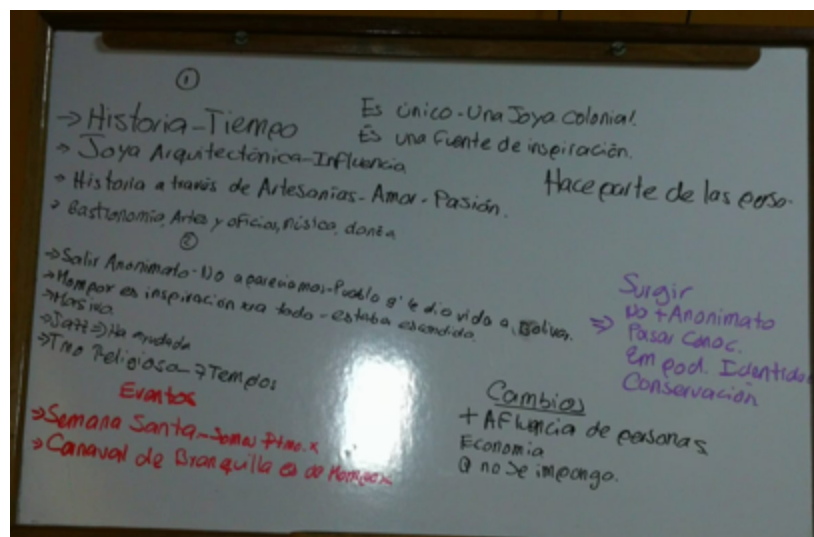 ①
→ Historia - Tiempo
→ Joya Arquitectónica - Influencia
→ Historia a través de Artesanías - Amor - Pasión.
→ Gastronomía, Artes y oficios, música, danza
Es único - Una Joya Colonial.
Es una fuente de inspiración.
Hace parte de las perso.
②
→ Salir Anonimato - No aparecíamos - Pueblo q' le dio vida a Bolívar.
→ Mompox es inspiración xra todo - estaba escondido.
→ Masivo.
→ Jazz ⇒ Ha ayudado
→ Tmo Religioso - 7 Templos
Eventos
→ Semana Santa - Somos Ptmo. x
→ Carnaval de Branquilla es de Mompox
⇒ Surgir
No + Anonimato
Pasar Conoc.
Empod. Identidad
Conservación
Cambios
+ Afluencia de personas
Economía
Q no se imponga.